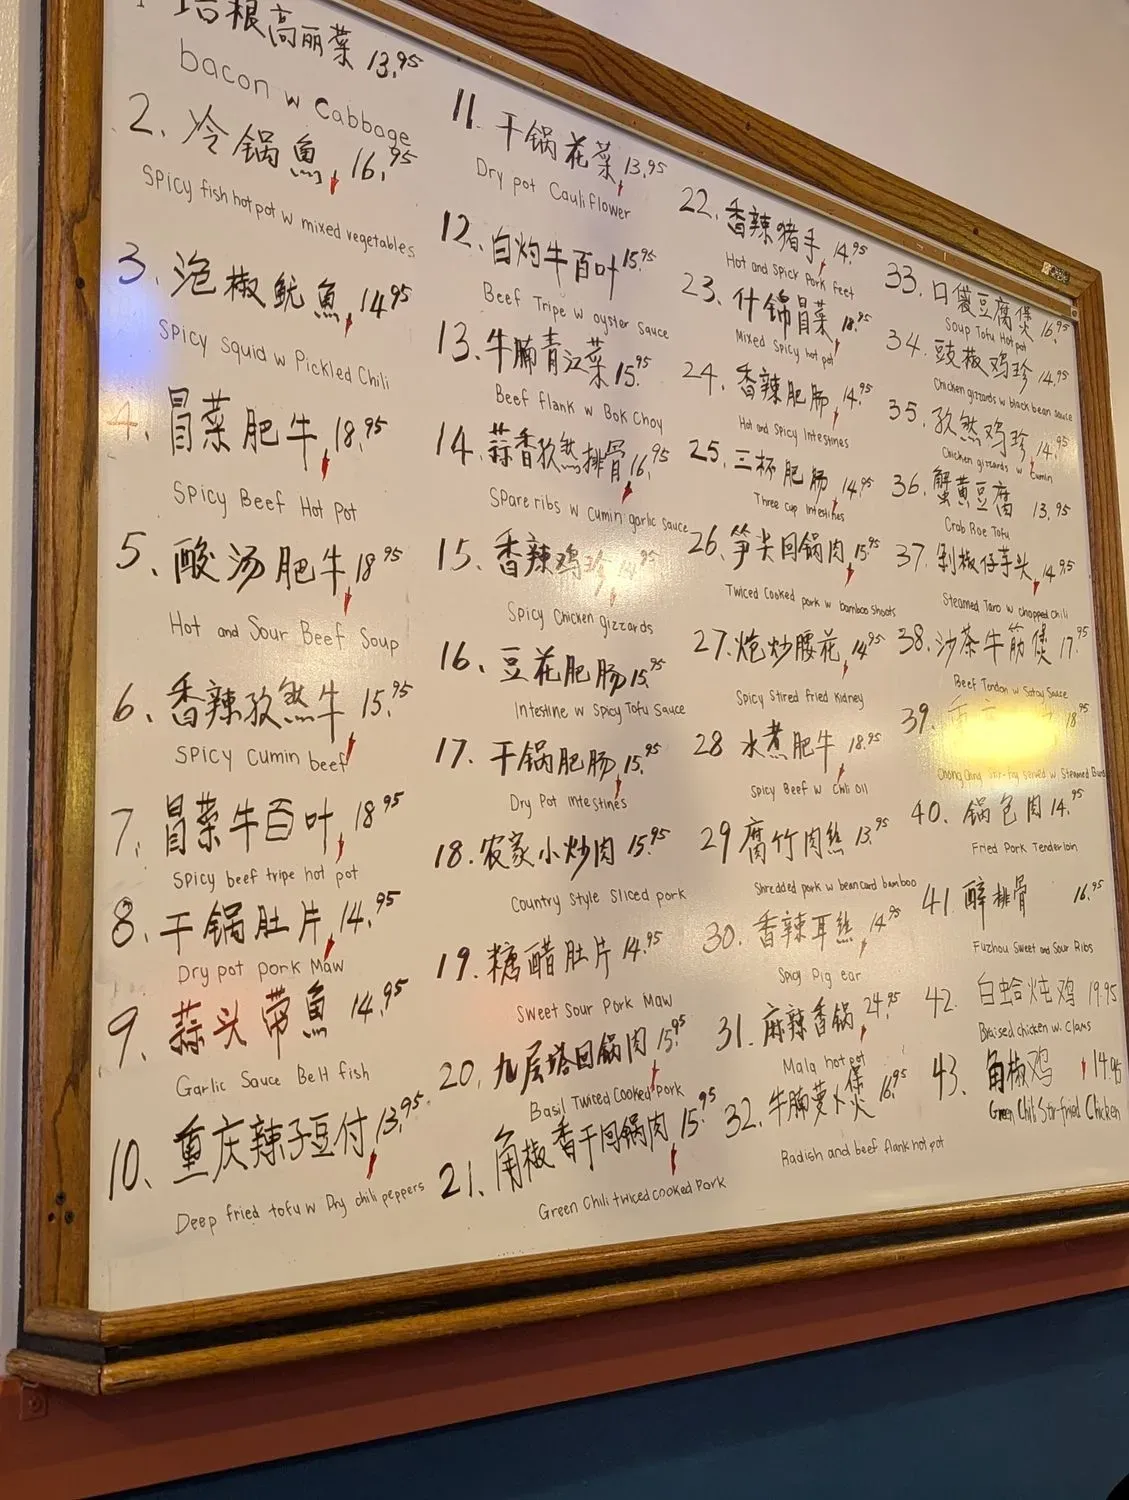 培根高丽菜 13.95
bacon w Cabbage
2. 冷锅魚 16.95
Spicy fish hot pot w mixed vegetables
3. 泡椒鱿魚 14.95
Spicy Squid w Pickled Chili
4. 冒菜肥牛 18.95
Spicy Beef Hot Pot
5. 酸汤肥牛 18.95
Hot and Sour Beef Soup
6. 香辣孜煞牛 15.95
Spicy Cumin beef
7. 冒菜牛百叶 18.95
Spicy beef tripe hot pot
8. 干锅肚片 14.95
Dry pot pork Maw
9. 蒜头带魚 14.95
Garlic Sauce Belt fish
10. 重庆辣子豆付 13.95
Deep fried tofu w Dry chili peppers
11. 干锅花菜 13.95
Dry pot Cauliflower
12. 白灼牛百叶 15.95
Beef Tripe w oyster sauce
13. 牛腩青江菜 15.95
Beef flank w Bok Choy
14. 蒜香孜煞排骨 16.95
Spare ribs w Cumin garlic sauce
15. 香辣鸡珍 14.95
Spicy Chicken gizzards
16. 豆花肥肠 15.95
Intestine w Spicy Tofu Sauce
17. 干锅肥肠 15.95
Dry Pot Intestines
18. 农家小炒肉 15.95
Country Style Sliced pork
19. 糖醋肚片 14.95
Sweet Sour Pork Maw
20. 九层塔回锅肉 15.95
Basil Twiced Cooked Pork
21. 角椒香干回锅肉 15.95
Green Chili twiced cooked Pork
22. 香辣猪手 14.95
Hot and Spick Pork feet
23. 什锦冒菜 18.95
Mixed Spicy hot pot
24. 香辣肥肠 14.95
Hot and Spicy Intestines
25. 三杯肥肠 14.95
Three cup Intestines
26. 笋尖回锅肉 15.95
Twiced Cooked pork w bamboo shoots
27. 炝炒腰花 14.95
Spicy Stired fried Kidney
28 水煮肥牛 18.95
Spicy Beef w Chili Oil
29 腐竹肉丝 13.95
Shredded pork w beancard bamboo
30. 香辣耳丝 14.95
Spicy Pig ear
31. 麻辣香锅 24.95
Mala hot pot
32. 牛腩萝卜煲 16.95
Radish and beef flank hot pot
33. 口袋豆腐煲 16.95
Soup Tofu Hot pot
34. 豉椒鸡珍 14.95
Chicken gizzards w black bean sauce
35. 孜煞鸡珍 14.95
Chicken gizzards w Cumin
36. 蟹黄豆腐 13.95
Crab Roe Tofu
37. 剁椒仔芋头 14.95
Steamed Taro w chopped chili
38. 沙茶牛筋煲 17.95
Beef Tendon w Satay Sauce
39. 18.95
Chong Qing Stir-fry served w Steamed
40. 锅包肉 14.95
Fried Pork Tenderloin
41. 醉排骨 16.95
Fuzhou Sweet and Sour Ribs
42. 白蛤炖鸡 19.95
Braised chicken w. Clams
43. 角椒鸡 14.95
Green Chili Stir-fried Chicken